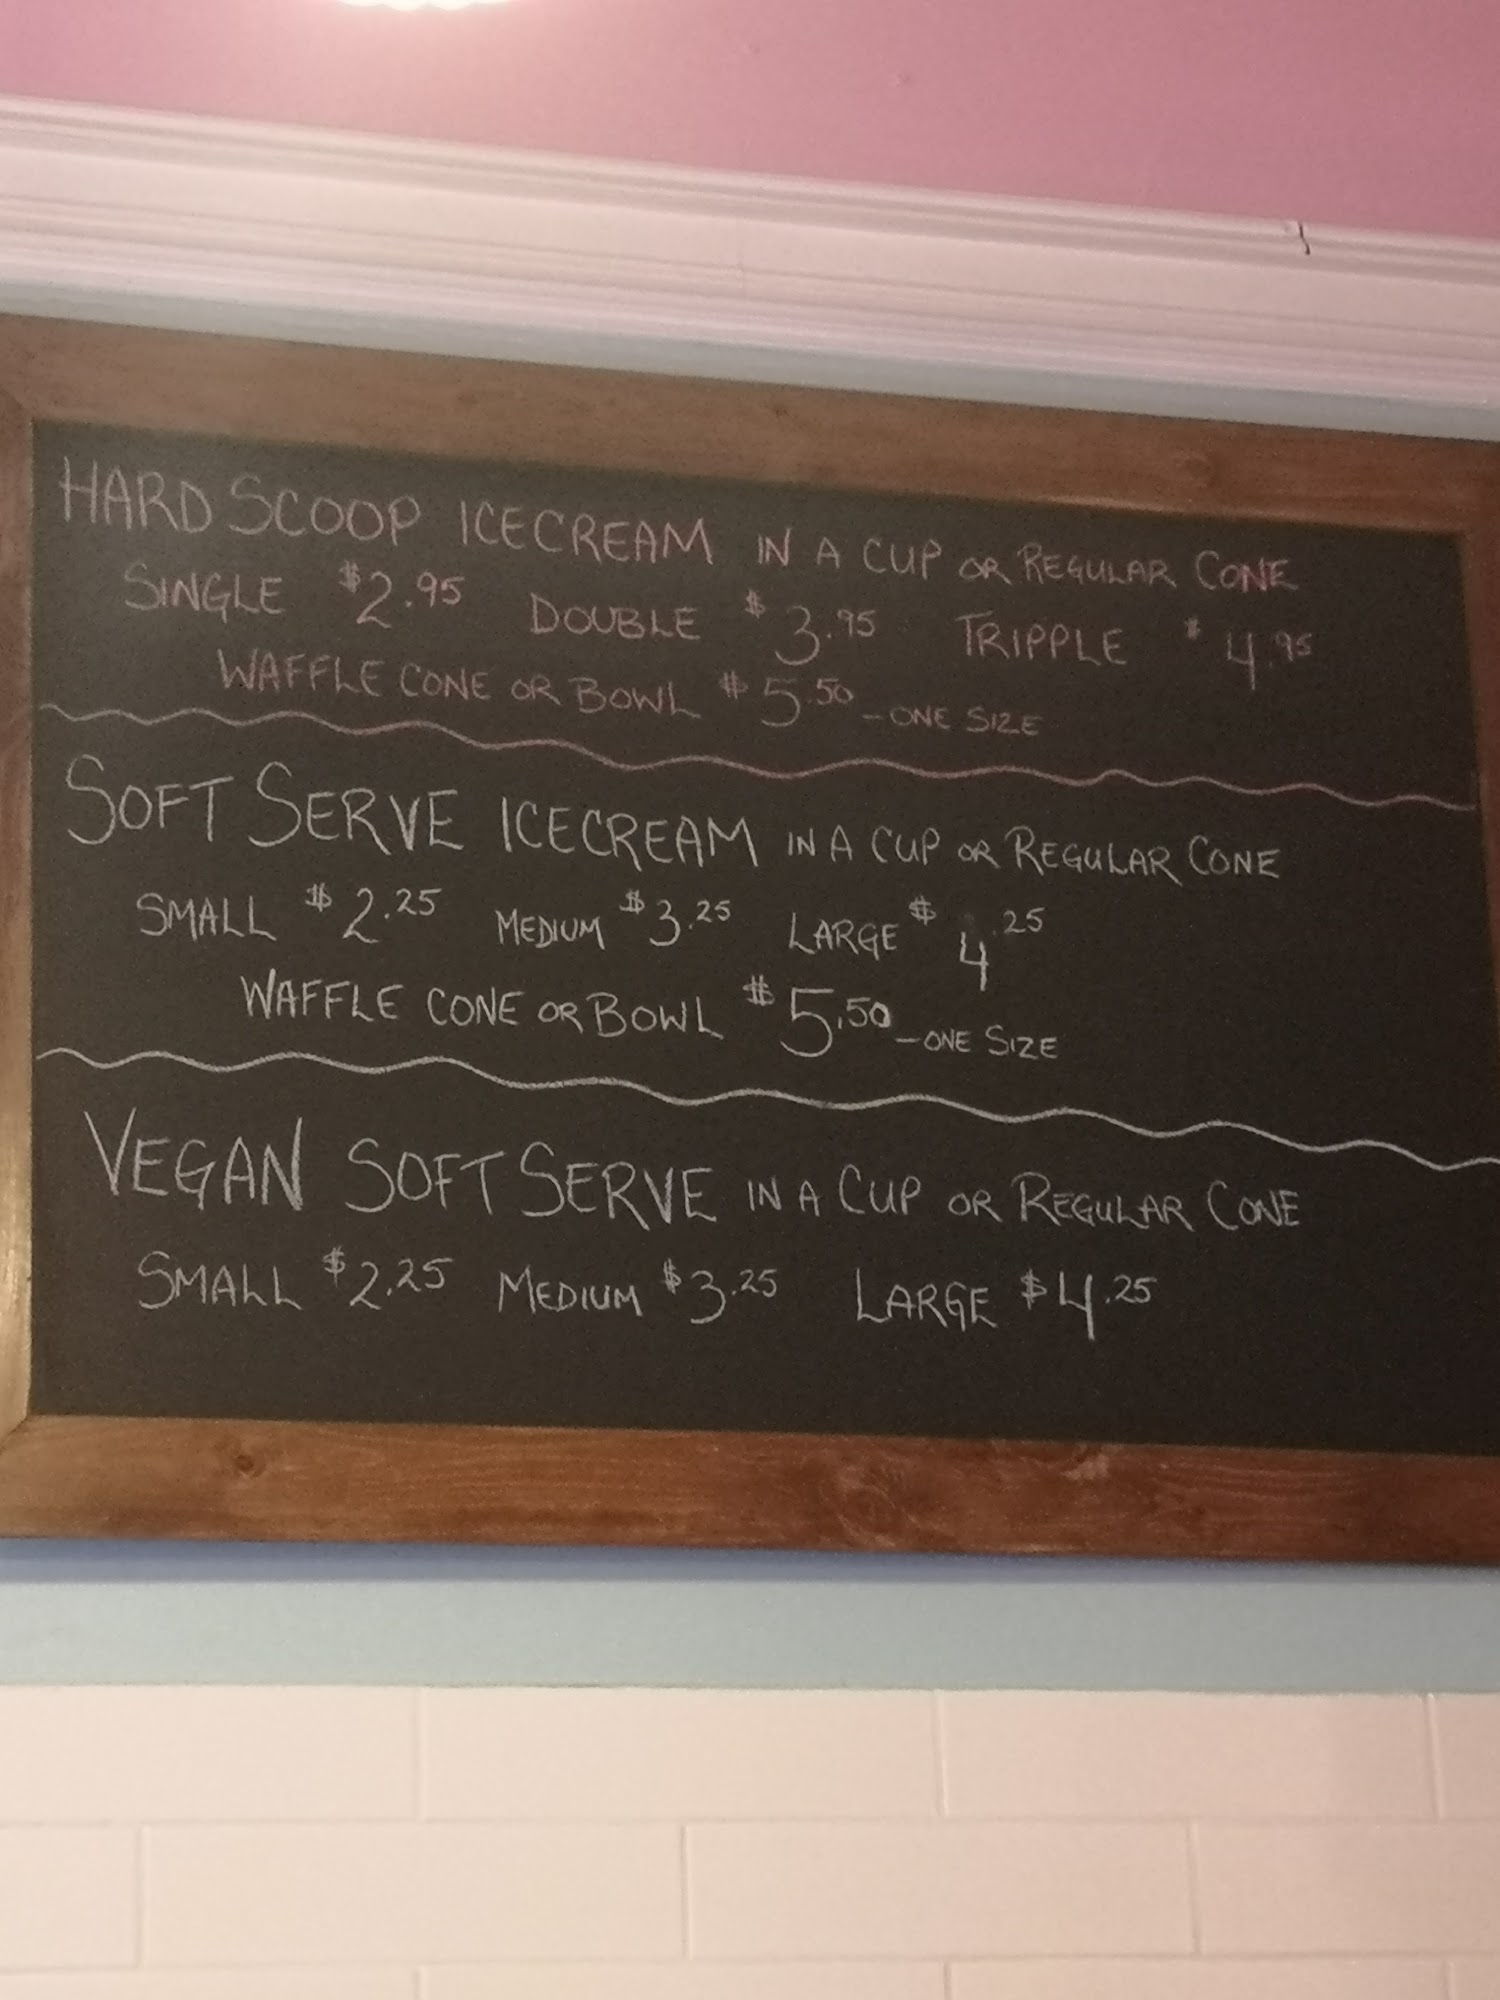 HARD SCOOP ICECREAM IN A CUP OR REGULAR CONE
SINGLE $2.95 DOUBLE $3.95 TRIPPLE $4.95
WAFFLE CONE OR BOWL $5.50 - ONE SIZE
SOFT SERVE ICECREAM IN A CUP OR REGULAR CONE
SMALL $2.25 MEDIUM $3.25 LARGE $4.25
WAFFLE CONE OR BOWL $5.50 - ONE SIZE
VEGAN SOFT SERVE IN A CUP OR REGULAR CONE
SMALL $2.25 MEDIUM $3.25 LARGE $4.25